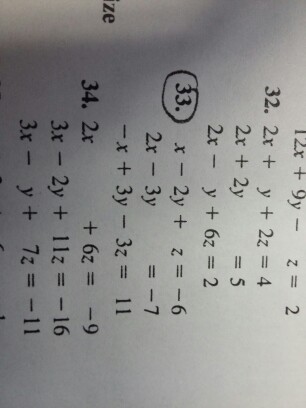 12x + 9y - z = 2
32. 2x + y + 2z = 4
2x + 2y = 5
2x - y + 6z = 2
33. x - 2y + z = -6
2x - 3y = -7
-x + 3y - 3z = 11
34. 2x + 6z = -9
3x - 2y + 11z = -16
3x - y + 7z = -11
ize